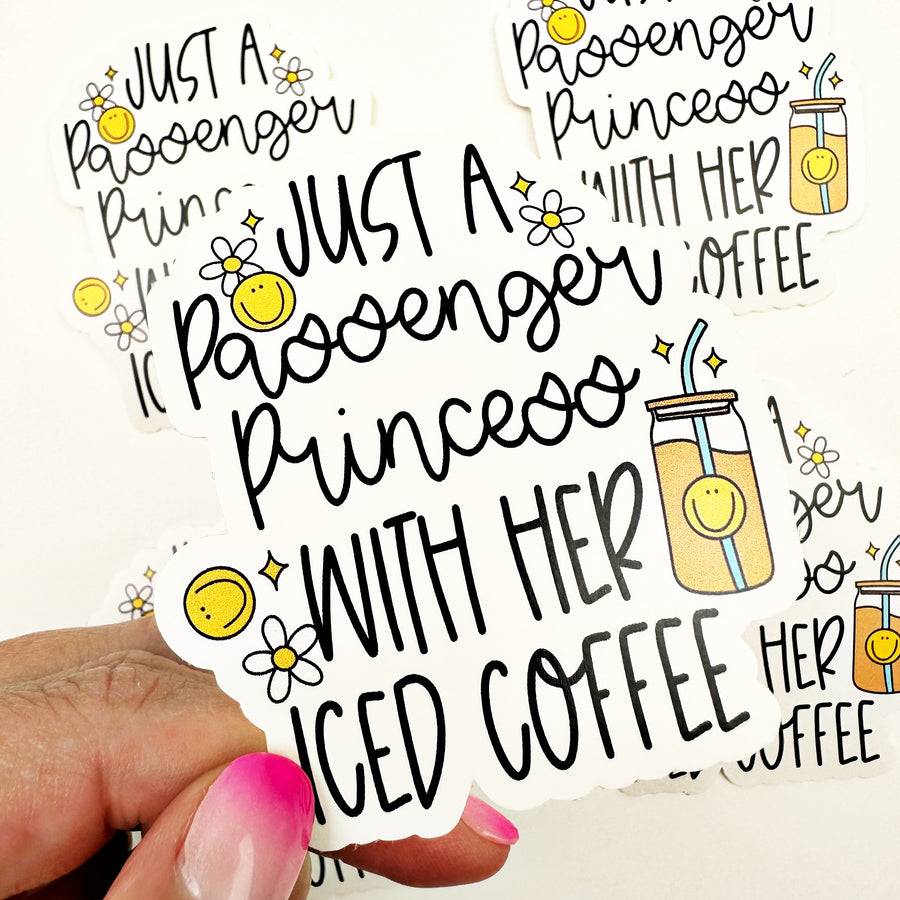 JUST A
Passenger
Princess
WITH HER
ICED COFFEE
JUST A
Passenger
Princ
IC
Passenger
Princess
WITH HER
COFFEE
HER
COFFEE